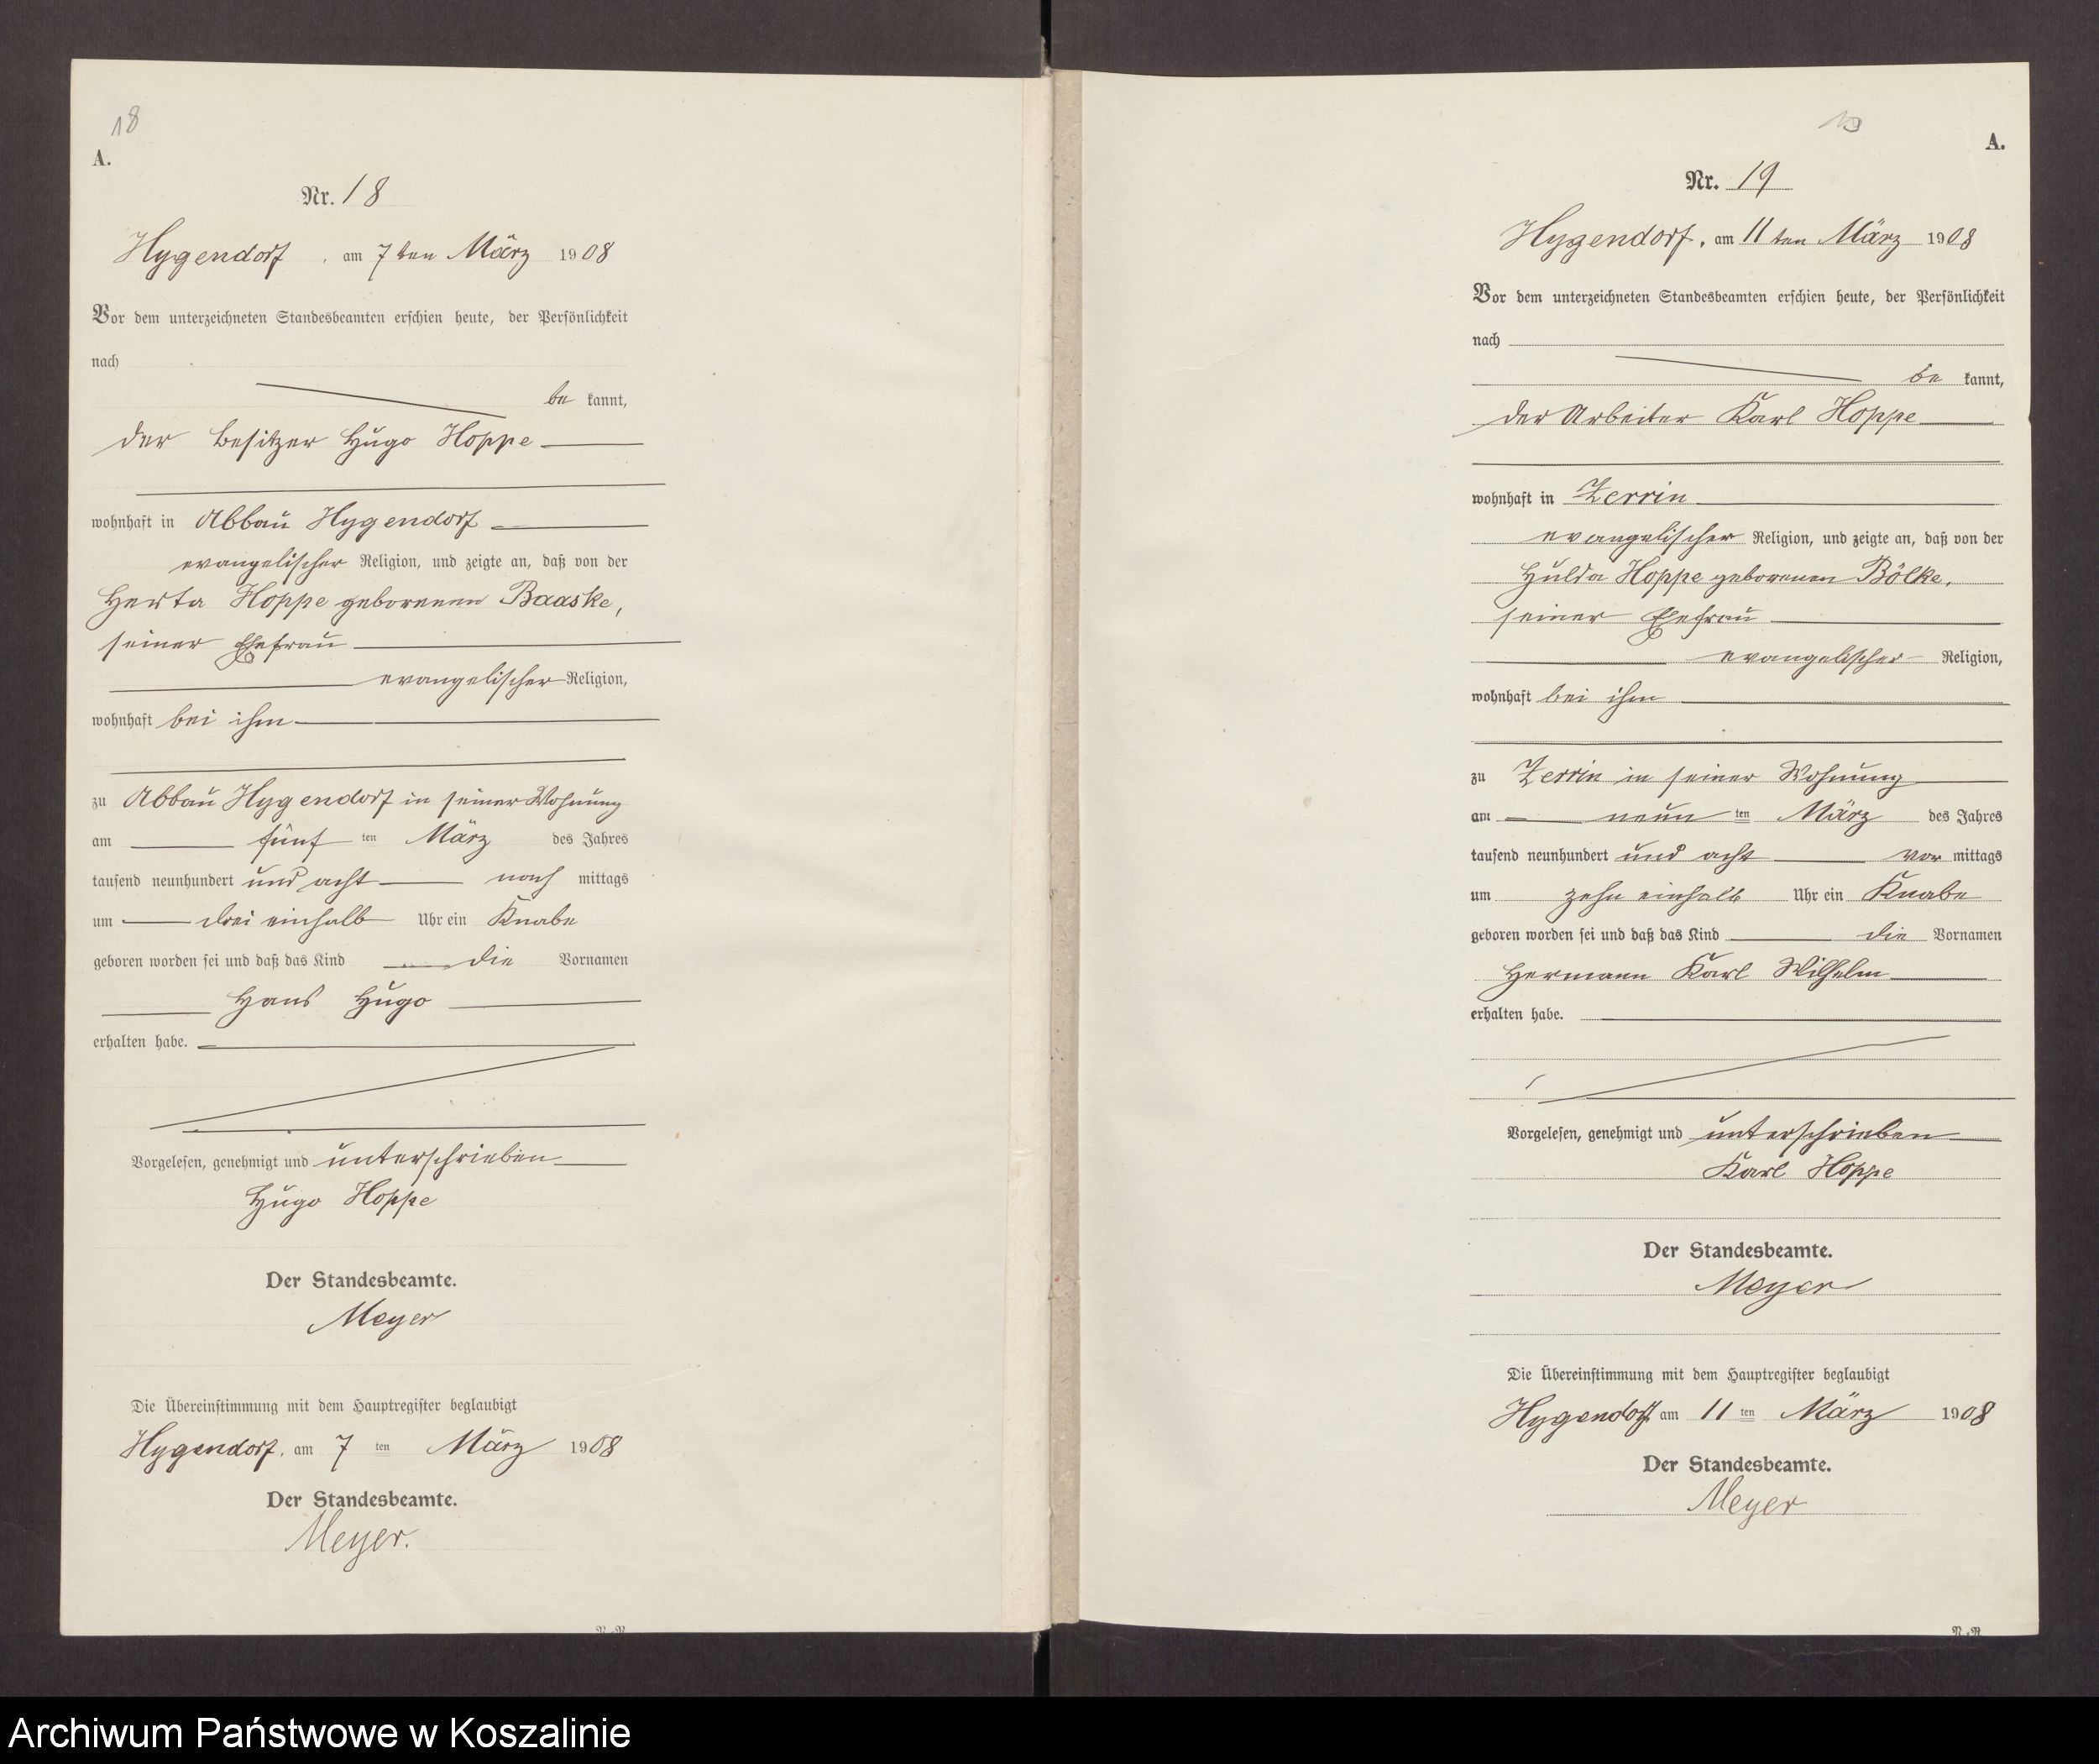 18
A.
Nr. 18
Hygendorf, am 7ten März 1908
Vor dem unterzeichneten Standesbeamten erschien heute, der Persönlichkeit
nach
be kannt,
der Besitzer Hugo Hoppe
wohnhaft in Abbau Hygendorf
evangelischer Religion, und zeigte an, daß von der
Herta Hoppe geborenen Baaske,
seiner Ehefrau
evangelischer Religion,
wohnhaft bei ihm
zu Abbau Hygendorf in seiner Wohnung
am fünf ten März des Jahres
tausend neunhundert und acht nach mittags
um drei einhalb Uhr ein Knabe
geboren worden sei und daß das Kind die Vornamen
Hans Hugo
erhalten habe.
Vorgelesen, genehmigt und unterschrieben
Hugo Hoppe
Der Standesbeamte.
Meyer
Die Übereinstimmung mit dem Hauptregister beglaubigt
Hygendorf, am 7 ten März 1908
Der Standesbeamte.
Meyer.
19
A.
Nr. 19
Hygendorf, am 11 ten März 1908
Vor dem unterzeichneten Standesbeamten erschien heute, der Persönlichkeit
nach
be kannt,
der Arbeiter Karl Hoppe
wohnhaft in Zerrin
evangelischer Religion, und zeigte an, daß von der
Hulda Hoppe geborenen Bölke,
seiner Ehefrau
evangelischer Religion,
wohnhaft bei ihm
zu Zerrin in seiner Wohnung
am neun ten März des Jahres
tausend neunhundert und acht vor mittags
um zehn einhalb Uhr ein Knabe
geboren worden sei und daß das Kind die Vornamen
Hermann Karl Wilhelm
erhalten habe.
Vorgelesen, genehmigt und unterschrieben
Karl Hoppe
Der Standesbeamte.
Meyer
Die Übereinstimmung mit dem Hauptregister beglaubigt
Hygendorf am 11 ten März 1908
Der Standesbeamte.
Meyer
Archiwum Państwowe w Koszalinie